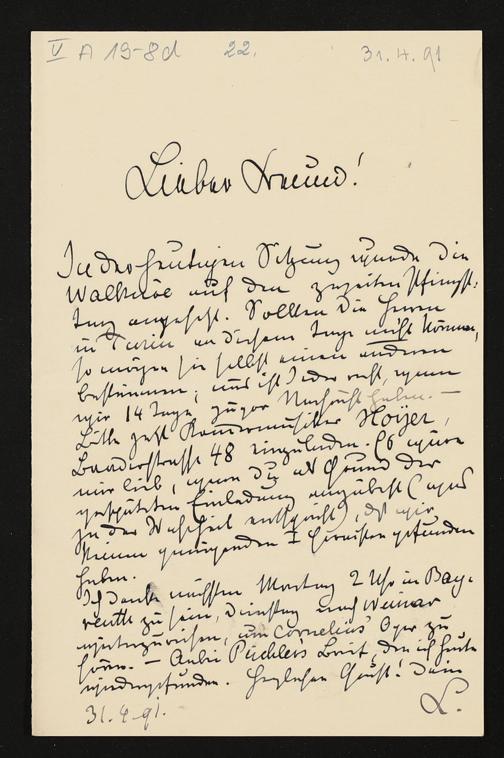 V A 19-8d 22. 31.4.91
Lieber Freund!
In der heutigen Sitzung wurde die
Walküre auf den zweiten Pfingst-
tag angesetzt. Sollten die Herren
in Turin an diesem Tage nicht können,
so mögen sie selbst einen anderen
bestimmen; uns ist jeder recht, wenn
wir 14 Tage zuvor Nachricht haben. —
Bitte jetzt Kammermusiker Hoyer,
Baaderstrasse 48 einzuladen. Es wäre
mir lieb, wenn Du als Grund der
verspäteten Einladung angäbest (was
ja der Wahrheit entspricht), daß wir
keinen genügenden I Hornisten gefunden
haben.
Ich denke nächsten Montag 2 Uhr in Bay-
reuth zu sein, Dienstag nach Weimar
weiterzureisen, um Cornelius' Oper zu
hören. — Anbei Pichler's Brief, den ich heute
wiedergefunden. Herzlichen Gruß! Dein
L.
31.4.91.